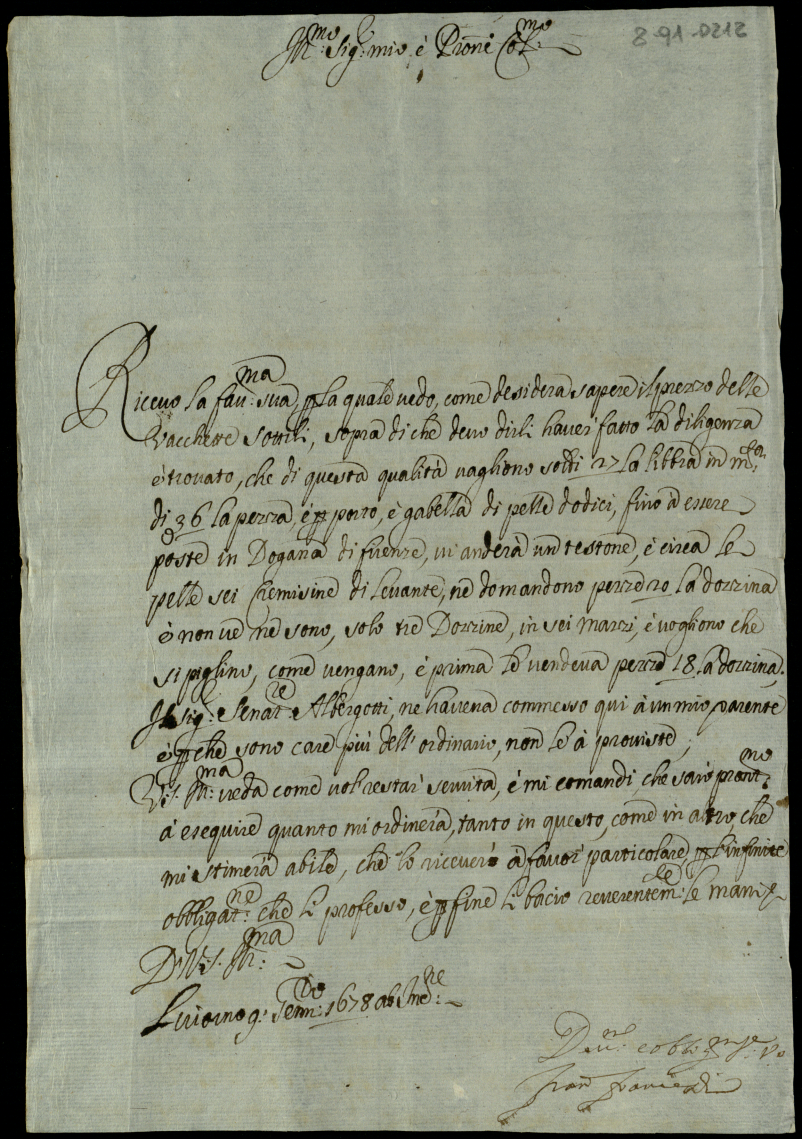 Ill:mo Sig:r mio è P̃rone Col:mo
Riceuo la fau:ma sua, p la quale uedo, come desidera sapere il prezzo delle
Vacchette sottili, sopra di che deuo dirli hauer fatto la diligenza
è trouato, che di questa qualità uagliono soldi 27 la libbra in
di 36 la pezza, è p porto, è gabella di pelle dodici, fino à essere
poste in Dogana di firenze, ui anderà un testone, è circa le
pelle sei Chemisine di Leuante, ne domandono pezze 20 la dozzina
è non ue ne sono, solo tre Dozzine, in sei mazzi, è uogliono che
si piglino, come uengano, è prima le uendeua pezze 18. la dozzina.
Il Sig:r Senat:re Albergotti, ne haueua commesso qui à un mio parente
è p che sono care più dell' ordinario, non le à prouiste;
V.S. Ill:ma ueda come uol restar seruita, è mi comandi, che sarò pront:mo
à esequire quanto mi ordinerà, tanto in questo, come in altro che
mi stimerà abile, che lo riceuerò à fauor particolare, p l'infinite
obbligat:ne che li professo, è p fine li bacio reuerentem:te le mani
Di V.S. Ill:ma
Liuorno 9: Genn:ro 1678 ab Inc:ne
Deu:mo e obblig:mo Se:re V:o
Fran:co